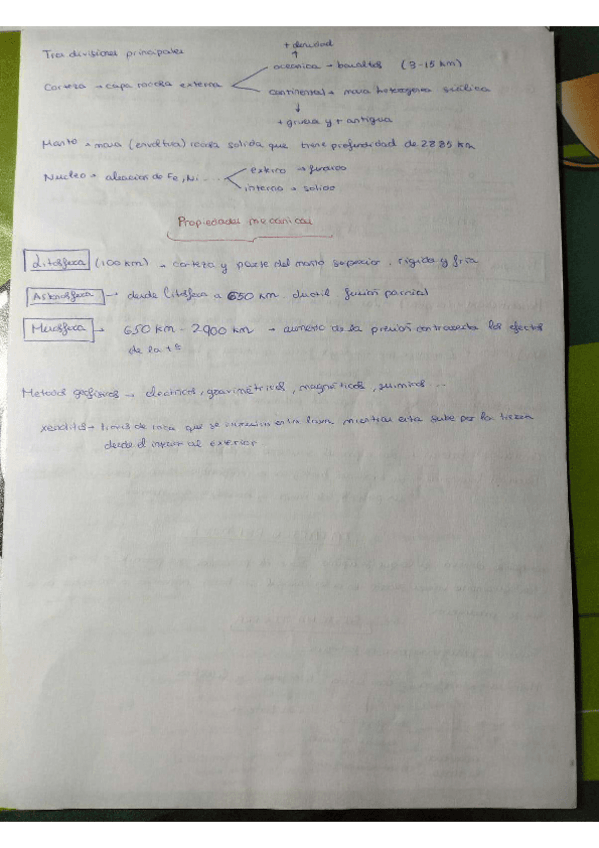 + densidad
Tres divisiones principales
oceánica → basaltos (3-15 km)
Corteza → capa rocosa externa
continental → masa heterogenea siálica
+ gruesa y + antigua
Manto → masa (envoltura) rocosa solida que tiene profundidad de 2885 km
Nucleo → aleacion de Fe, Ni ...
externo → fundido
interno → solido
Propiedades mecánicas
Litosfera (100 km) → corteza y parte del manto superior. rígida y fría
Astenosfera → desde litosfera a 650 km. ductil fusión parcial
Mesosfera → 650 km - 2900 km → aumento de la presion contrarresta los efectos
de la tª
Metodos geofisicos → electricos, gravimétricos, magnéticos, sismicos ...
xenolitos → trozos de roca que se entre mientras esta sube por la
desde el interior al exterior